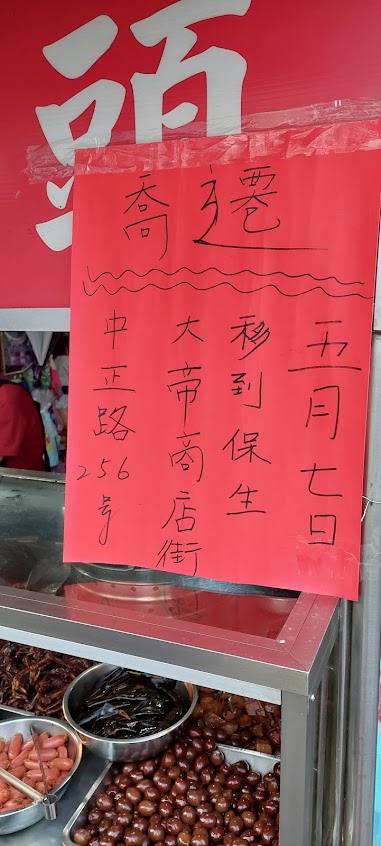 頭
喬遷
五月七日
移到保生
大帝商店街
中正路
256
号